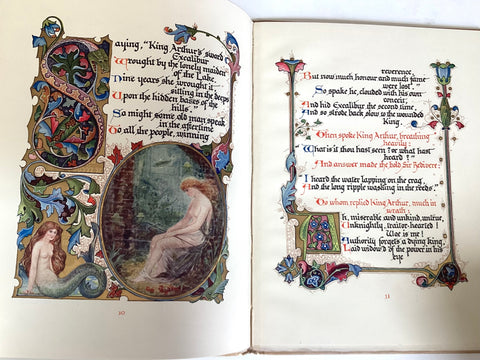 Saying, "King Arthur's sword
Excalibur
Wrought by the lonely maiden
of the Lake.
Nine years she wrought it
sitting in the deeps
Upon the hidden bases of the
hills."
So might some old man speak
in the aftertime
To all the people, winning
30
reverence.
But now much honour and much fame
were lost."
So spake he, clouded with his own
conceit,
And hid Excalibur the second time,
And so strode back slow to the wounded
King.
Then spoke King Arthur, breathing
heavily:
"What is it thou hast seen? or what hast
heard?"
And answer made the bold Sir Bedivere:
"I heard the water lapping on the crag,
And the long ripple washing in the reeds."
To whom replied King Arthur, much in
wrath:
"Ah, miserable and unkind, untrue,
Unknightly, traitor-hearted!
Woe is me!
Authority forgets a dying king,
Laid widow'd of the power in his
eye
31